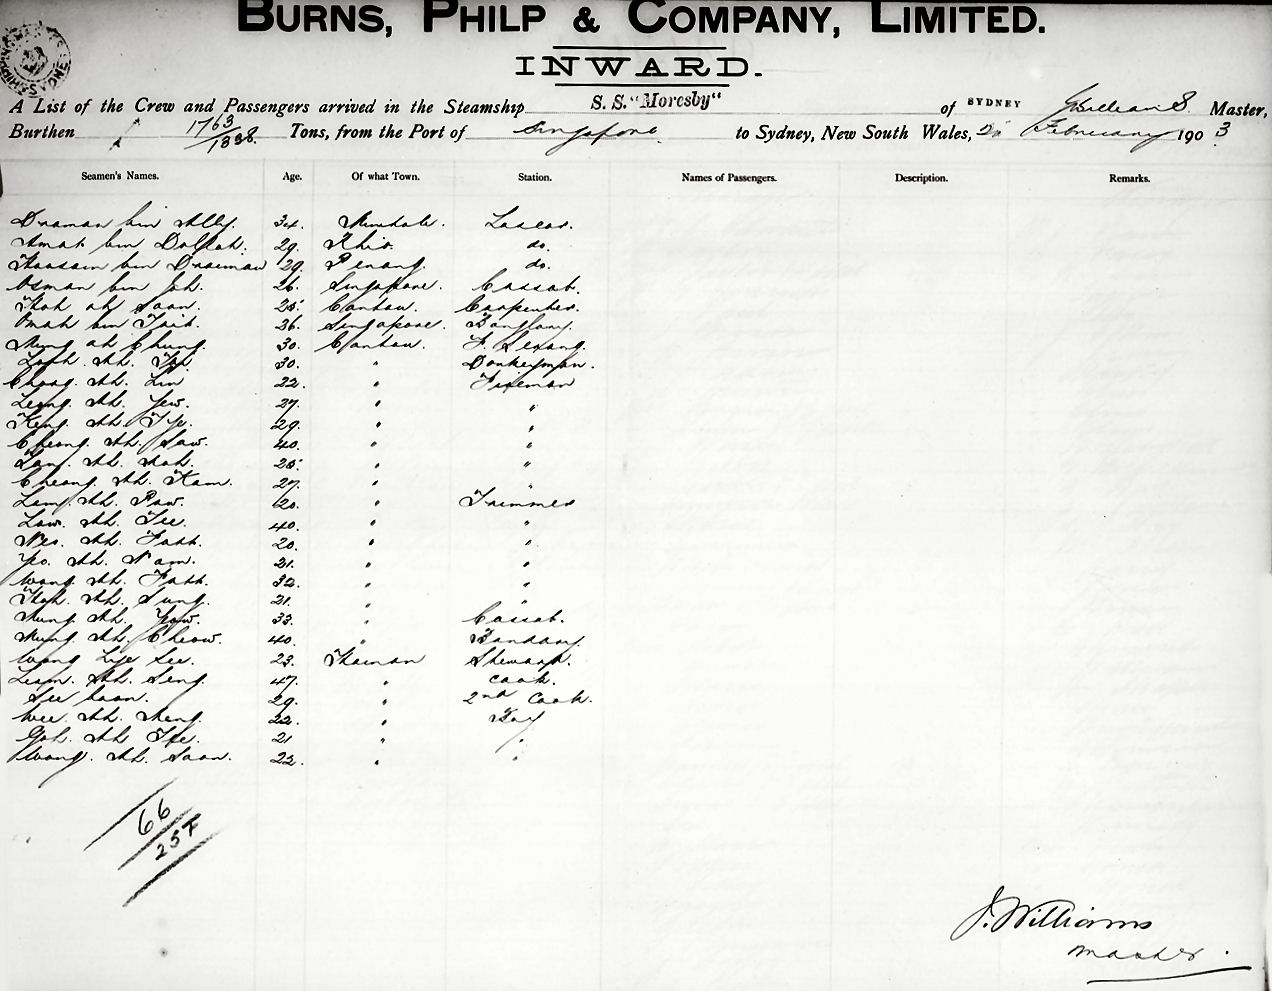 BURNS, PHILP & COMPANY, LIMITED.
INWARD.
A List of the Crew and Passengers arrived in the Steamship S. S. "Moresby" of SYDNEY Williams Master,
Burthen 1763/1838 Tons, from the Port of Singapore to Sydney, New South Wales, February 1903
Seamen's Names. Age. Of what Town. Station. Names of Passengers. Description. Remarks.
Draman bin Ally. 34. Lascar.
Amat bin Dollah. 29. Rhio. do.
Hassain bin Draiman 29. Penang. do.
Osman bin Joh. 26. Singapore. Cassab.
Hoh ah Soon. 25. Canton. Carpenter.
bin 36. Singapore.
Mung ah Chung. 30. Canton.
Ah. 30. " Donkeyman.
Choog. Ah. Lin 22. " Fireman
Leong. Ah. Yew. 27. " "
Keng. Ah. 29. " "
Cheong. Ah. Saw. 40. " "
Ah. 25. " "
Cheong. Ah. Kam. 27. " "
Lem. Ah. Paw. 20. " Trimmer
Low. Ah. Tee. 40. " "
Ah. Fatt. 20. " "
Yeo. Ah. Nam. 21. " "
Wong. Ah. Fatt. 32. " "
Hoh. Ah. Sung. 21. " "
Mung. Ah. Yow. 33. " Cassab.
Mung. Ah. Cheow. 40. " Bandary.
Wong Lye See. 23. Hainan Steward.
Ah. Seng. 47. " Cook.
See Soon. 29. " 2nd Cook.
Wee. Ah. Meng. 22. " Boy
Goh. Ah Tee. 21 " "
Wong. Ah. Soon. 22. " "
66
257
J. Williams
Master.